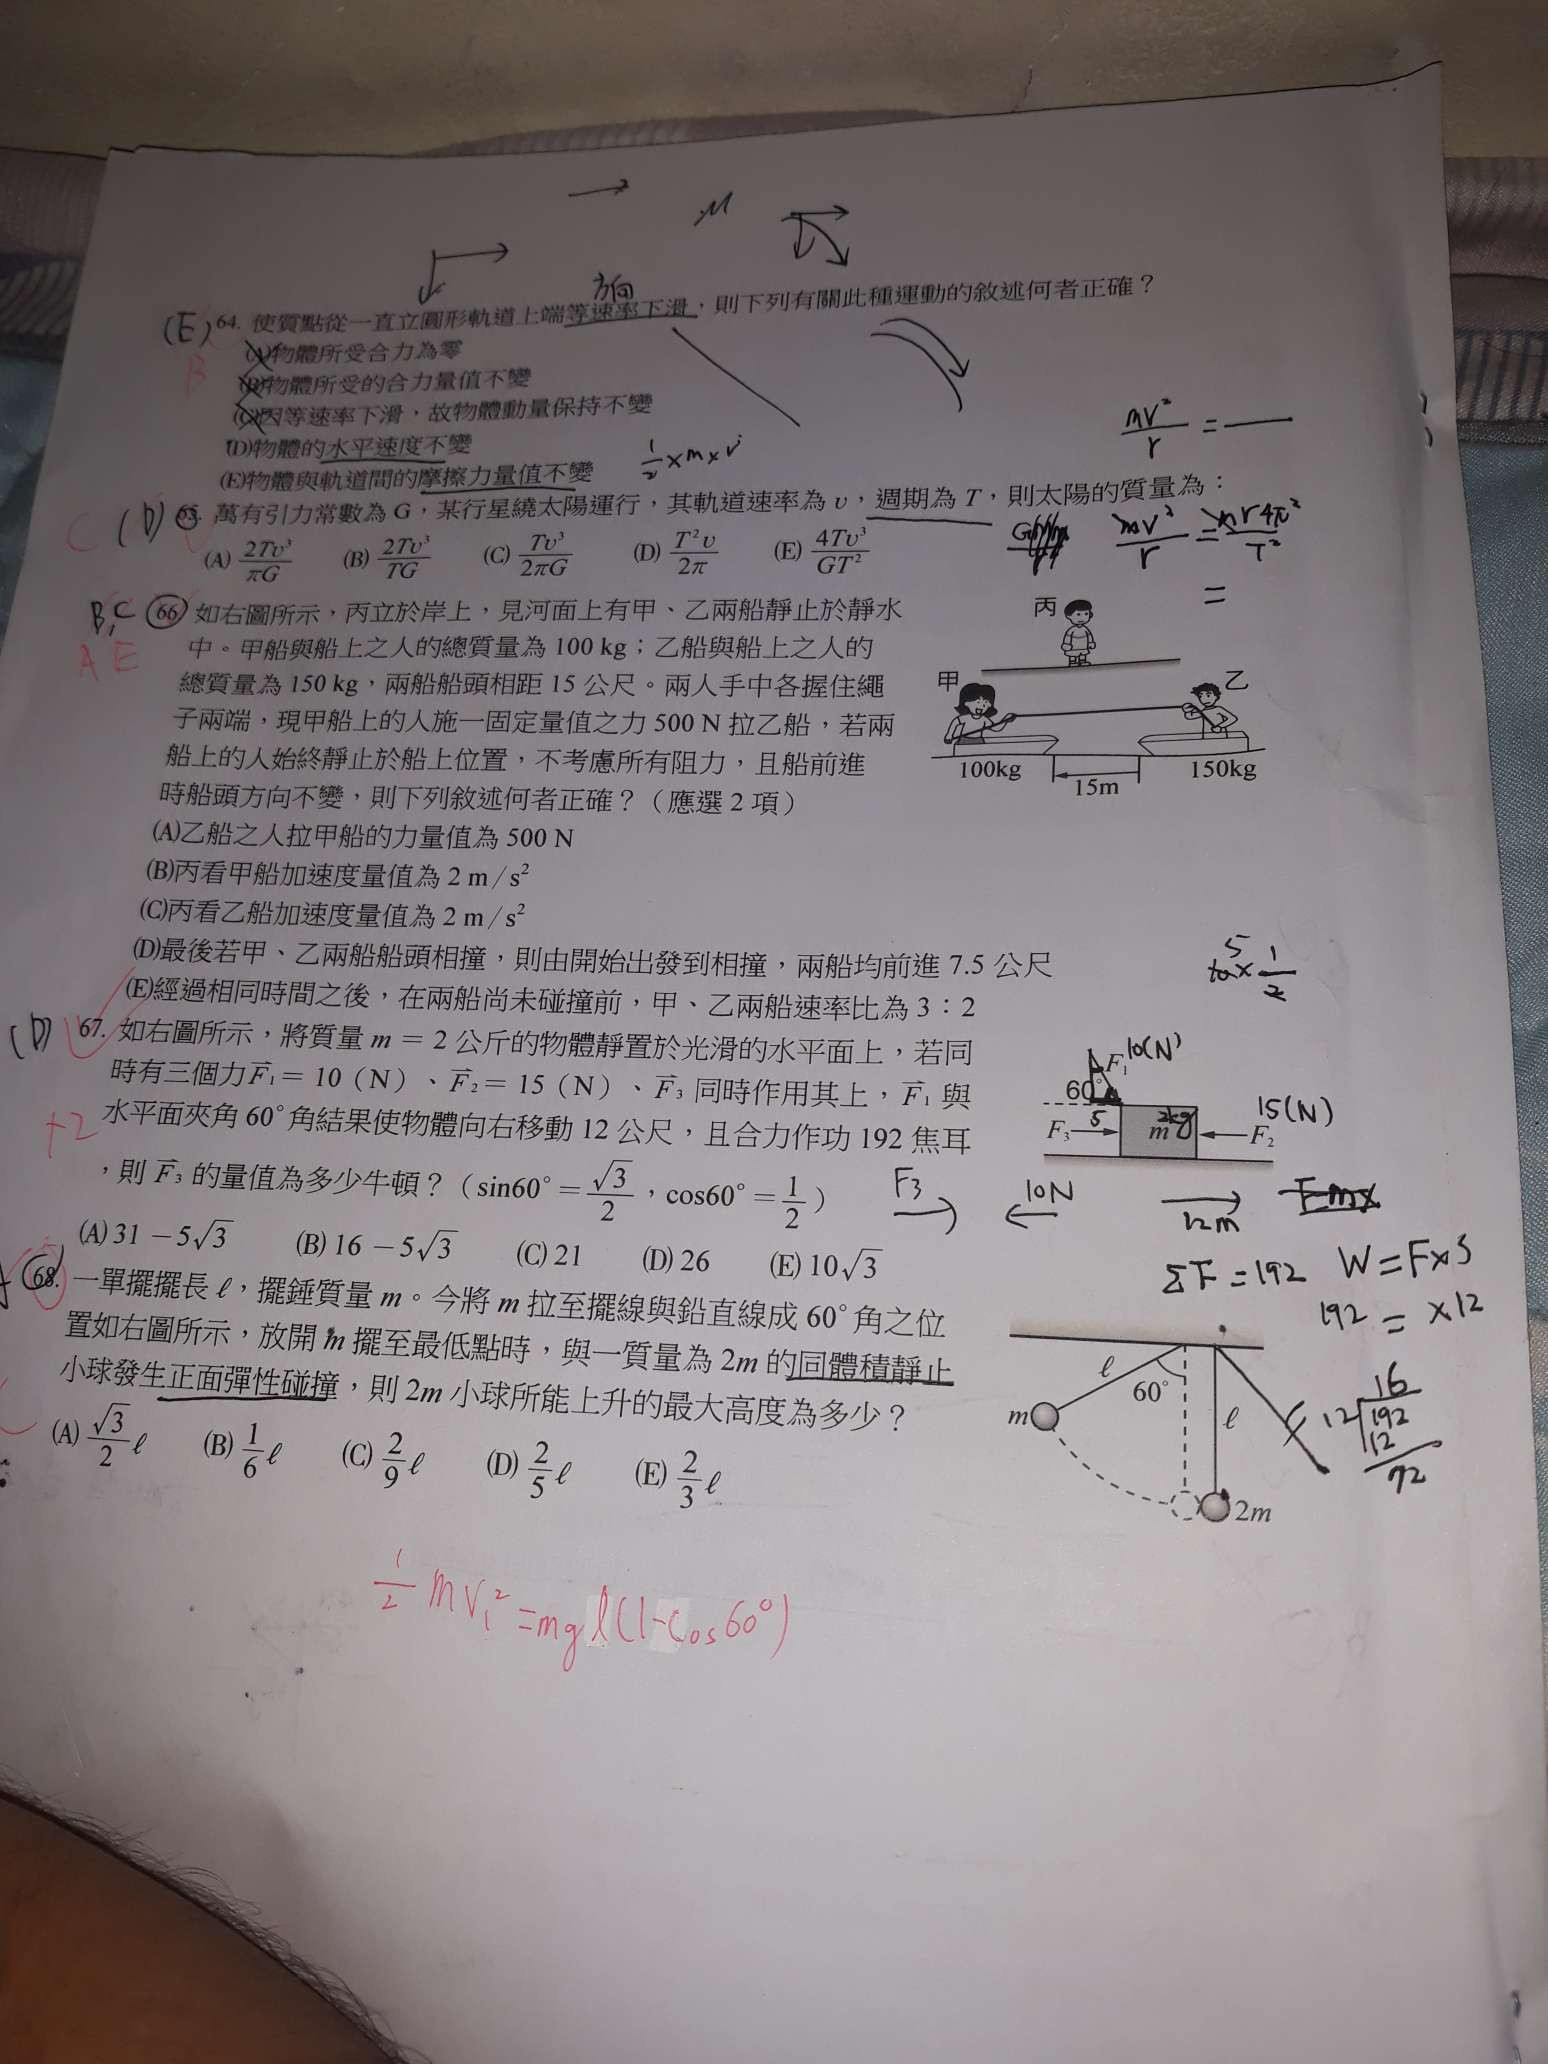 方向
(E) 64. 使質點從一直立圓形軌道上端等速率下滑，則下列有關此種運動的敘述何者正確？
B
(A)物體所受合力為零
(B)物體所受的合力量值不變
(C)因等速率下滑，故物體動量保持不變
(D)物體的水平速度不變
(E)物體與軌道間的摩擦力量值不變
mv²/r =
C (D) 65. 萬有引力常數為 G，某行星繞太陽運行，其軌道速率為 υ，週期為 T，則太陽的質量為：
(A) 2Tυ³/πG (B) 2Tυ³/TG (C) Tυ³/2πG (D) T²υ/2π (E) 4Tυ³/GT²
mv²/r = mr4π²/T²
=
B,C 66. 如右圖所示，丙立於岸上，見河面上有甲、乙兩船靜止於靜水
A E
中。甲船與船上之人的總質量為 100 kg；乙船與船上之人的
總質量為 150 kg，兩船船頭相距 15 公尺。兩人手中各握住繩
子兩端，現甲船上的人施一固定量值之力 500 N 拉乙船，若兩
船上的人始終靜止於船上位置，不考慮所有阻力，且船前進
時船頭方向不變，則下列敘述何者正確？（應選 2 項）
丙
甲 乙
100kg 15m 150kg
(A)乙船之人拉甲船的力量值為 500 N
(B)丙看甲船加速度量值為 2 m / s²
(C)丙看乙船加速度量值為 2 m / s²
(D)最後若甲、乙兩船船頭相撞，則由開始出發到相撞，兩船均前進 7.5 公尺
(E)經過相同時間之後，在兩船尚未碰撞前，甲、乙兩船速率比為 3：2
5
10×1/2
(D) 67. 如右圖所示，將質量 m = 2 公斤的物體靜置於光滑的水平面上，若同
時有三個力F⃗₁ = 10（N）、F⃗₂ = 15（N）、F⃗₃ 同時作用其上，F⃗₁ 與
水平面夾角 60° 角結果使物體向右移動 12 公尺，且合力作功 192 焦耳
，則 F⃗₃ 的量值為多少牛頓？（sin60° = √3/2，cos60° = 1/2）
+2
F₁ 10(N)
60°
5 2kg 15(N)
F₃ m F₂
F3 10N 12m
(A) 31 − 5√3 (B) 16 − 5√3 (C) 21 (D) 26 (E) 10√3
ΣF = 192 W = F×S
192 = ×12
68. 一單擺擺長 ℓ，擺錘質量 m。今將 m 拉至擺線與鉛直線成 60° 角之位
置如右圖所示，放開 m 擺至最低點時，與一質量為 2m 的同體積靜止
小球發生正面彈性碰撞，則 2m 小球所能上升的最大高度為多少？
(A) √3/2 ℓ (B) 1/6 ℓ (C) 2/9 ℓ (D) 2/5 ℓ (E) 2/3 ℓ
ℓ 60° m ℓ 2m
16
12 192
12
72
1/2 mv₁² = mgℓ(1-cos60°)